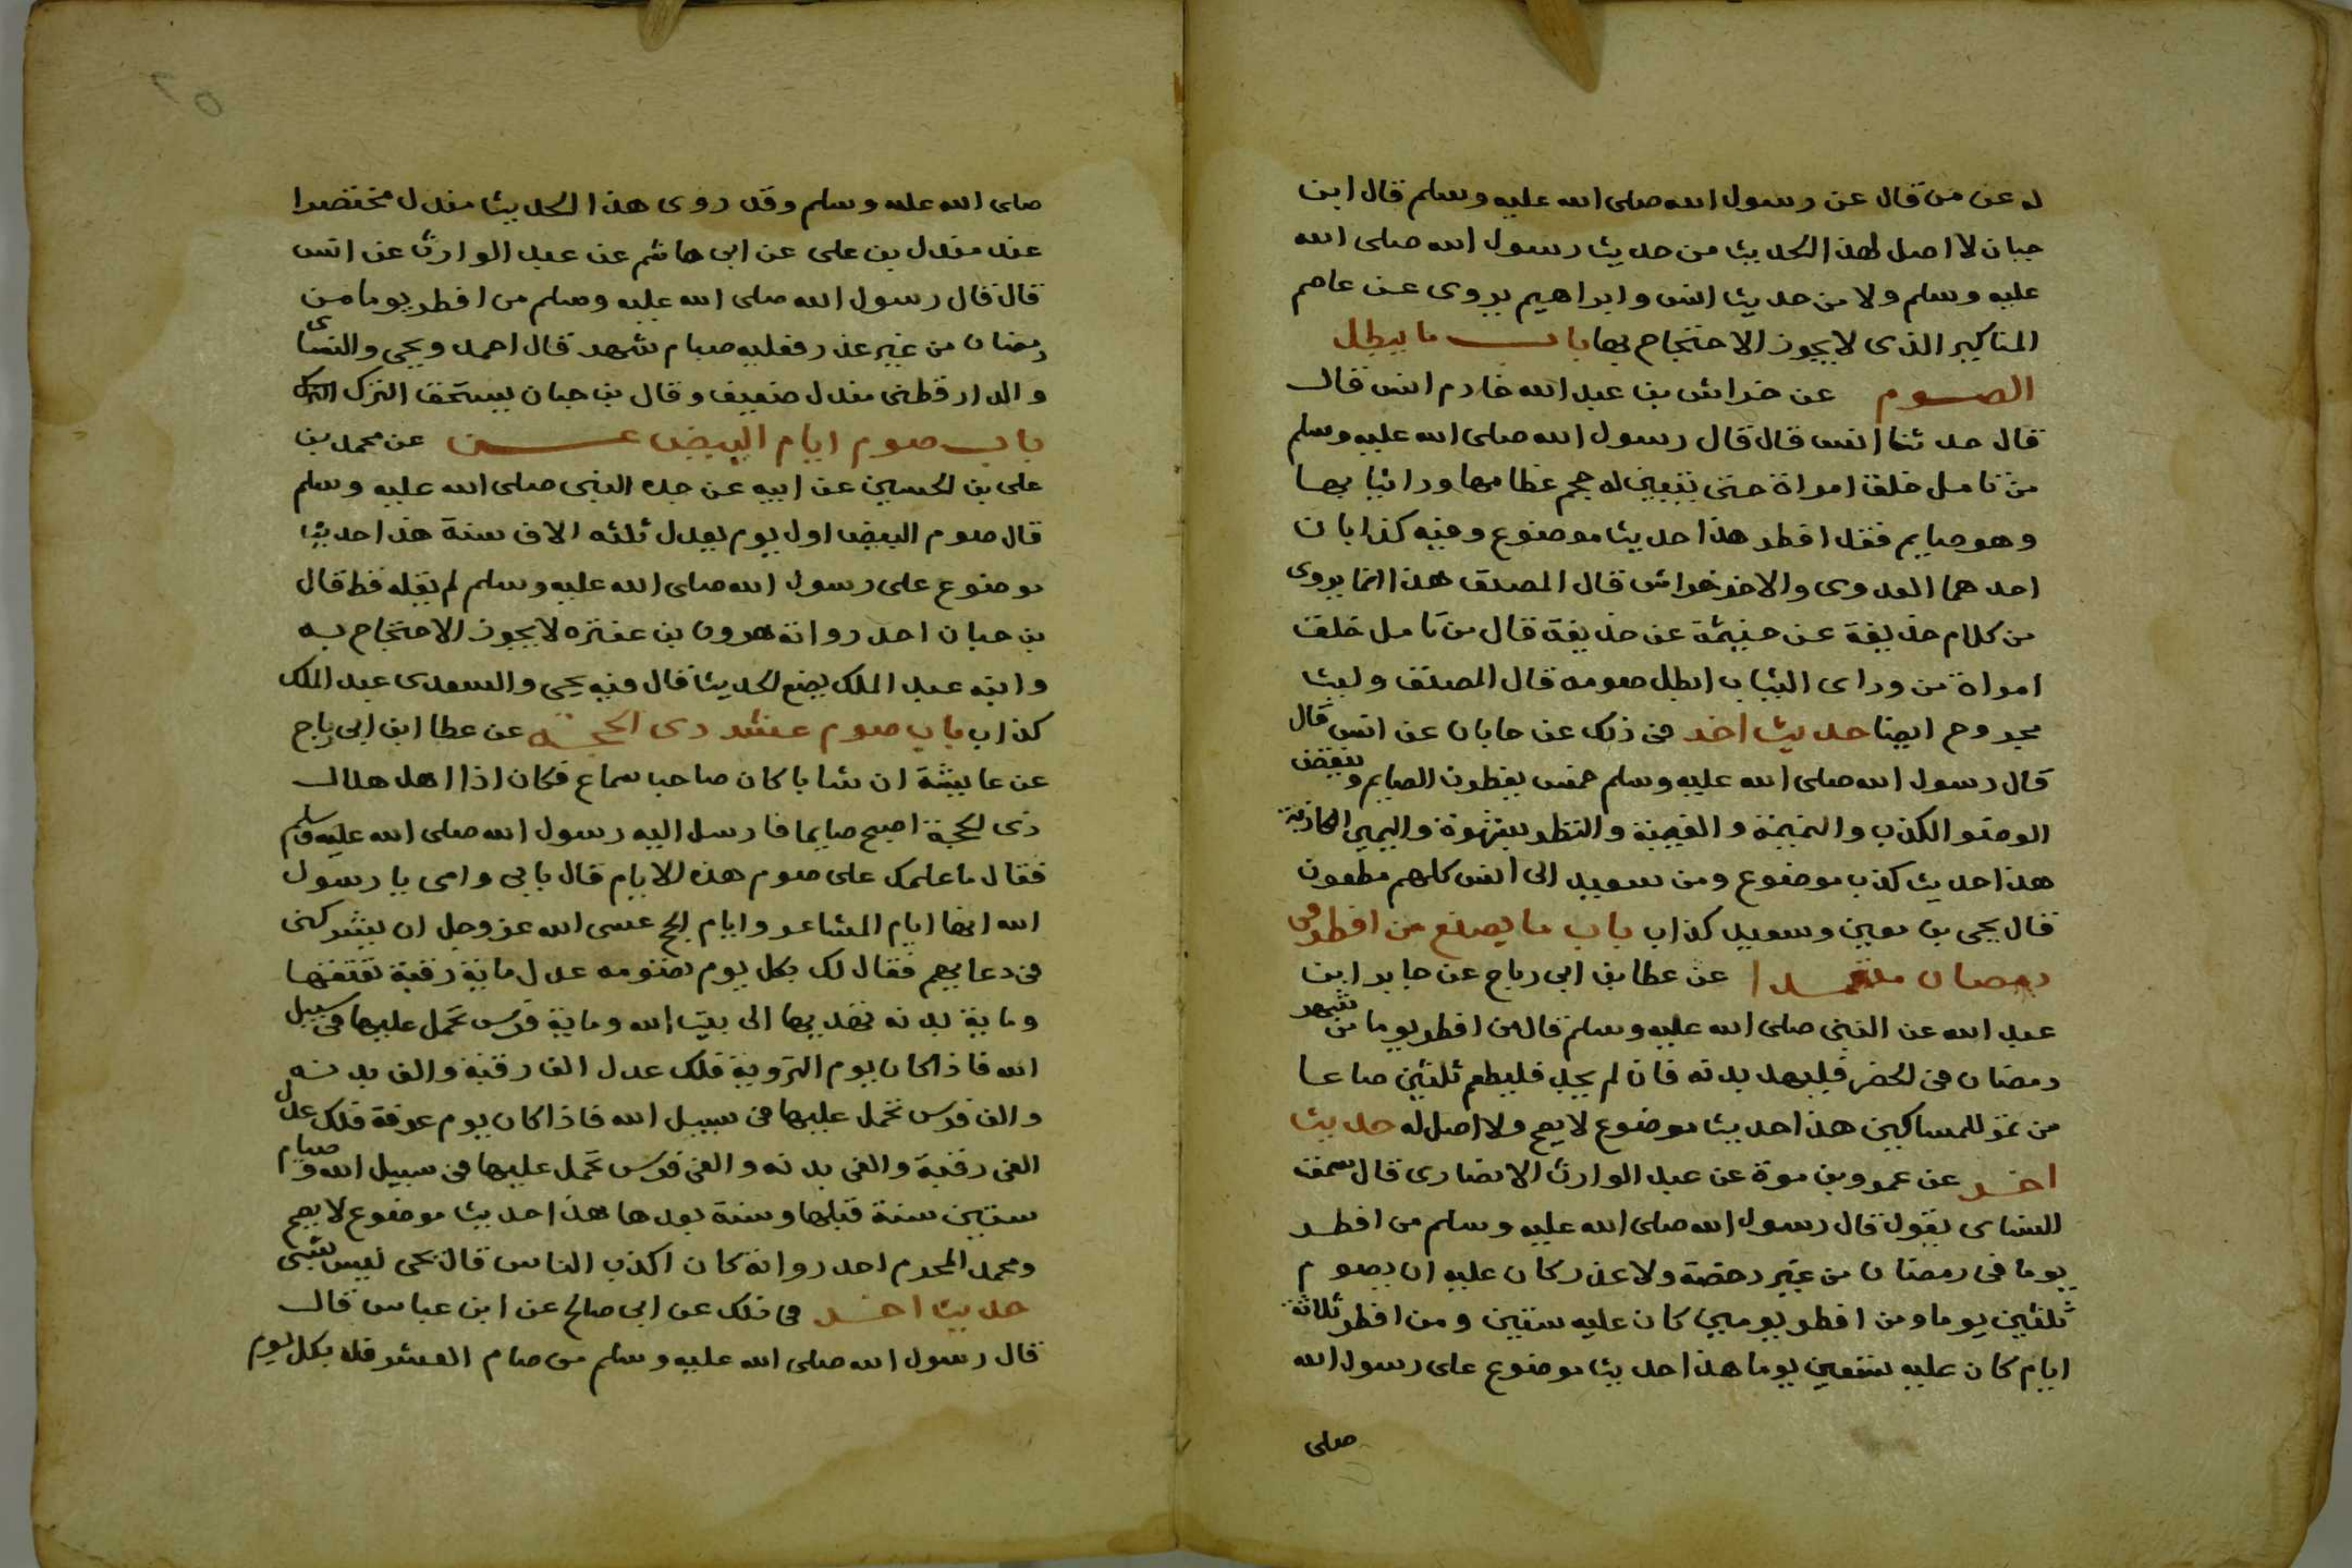 له عن من قال عن رسول الله صلى الله عليه وسلم قال ابن
حبان لا اصل لهذا الحديث من حديث رسول الله صلى الله
عليه وسلم ولا من حديث انس وابراهيم يروى عن عاصم
المناكير الذى لا يجوز الاحتجاج بها باب ما يبطل
الصوم عن خراش بن عبد الله خادم انس قال
قال حدثنا انس قال قال رسول الله صلى الله عليه وسلم
من تامل خلق امراة حتى يتبين له حجم عظامها وراثيابها
وهو صايم فقد افطر هذا حديث موضوع وفيه كذابان
احدهما العدوى والاخر خراش قال المصنف هذا انما يروى
من كلام حذيفة عن خيثمة عن حذيفة قال من تامل خلق
امراة من وراى الثياب ابطل صومه قال المصنف وليث
مجروح ايضا حديث اخر فى ذلك عن جابان عن انس قال
قال رسول الله صلى الله عليه وسلم خمس يفطرن الصايم وينقض
الوضو الكذب والنميمة والغيبة والنظر بشهوة واليمين الكاذبة
هذا حديث كذب موضوع ومن سعيد الى انس كلهم مطعون
قال يحيى بن معين وسعيد كذاب باب ما يصنع من افطر فى
رمضان متعمدا عن عطا بن ابى رباح عن جابر ابن
عبد الله عن النبى صلى الله عليه وسلم قال من افطر يوما من شهر
رمضان فى الحضر فليهد بدنه فان لم يجد فليطعم ثلثين صاعا
من تمر للمساكين هذا حديث موضوع لا يصح ولا اصل له حديث
اخر عن عمرو بن مرة عن عبد الوارث الانصارى قال سمعت
انس يقول قال رسول الله صلى الله عليه وسلم من افطر
يوما فى رمضان من غير رخصة ولا عذر كان عليه ان يصوم
ثلثين يوما ومن افطر يومين كان عليه ستين ومن افطر ثلاثة
ايام كان عليه تسعين يوما هذا حديث موضوع على رسول الله
صلى
صلى الله عليه وسلم وقد روى هذا الحديث مندل مختصرا
عند مندل بن على عن ابى هاشم عن عبد الوارث عن انس
قال قال رسول الله صلى الله عليه وسلم من افطر يوما من
رمضان من غير عذر فعليه صيام شهر قال احمد ويحيى والنساى
والدارقطنى مندل ضعيف وقال بن حبان يستحق الترك
باب صوم ايام البيض عن محمد بن
على بن الحسين عن ابيه عن جده النبى صلى الله عليه وسلم
قال صوم البيض اول يوم يعدل ثلثه الاف سنة هذا حديث
موضوع على رسول الله صلى الله عليه وسلم لم يقله قط قال
بن حبان احد رواته هرون بن عنتره لا يجوز الاحتجاج به
وابنه عبد الملك يضع الحديث قال فيه يحيى والسعدى عبد الملك
كذاب باب صوم عشر ذى الحجة عن عطا ابن ابى رباح
عن عايشة ان شابا كان صاحب سماع فكان اذا اهل هلال
ذى الحجة اصبح صايما فارسل اليه رسول الله صلى الله عليه وسلم
فقال ما علمك على صوم هذه الايام قال بابى وامى يا رسول
الله انها ايام المشاعر وايام الحج عسى الله عز وجل ان يشركنى
فى دعايهم فقال لك بكل يوم تصومه عدل ماية رقبة تعتقها
وماية بدنه تهديها الى بيت الله وماية فرس تحمل عليها فى سبيل
الله فاذا كان يوم التروية فلك عدل الف رقبة والف بدنه
والف فرس تحمل عليها فى سبيل الله فاذا كان يوم عرفة فلك عدل
الفى رقبة والفى بدنه والفى فرس تحمل عليها فى سبيل الله وصيام
سنتين سنة قبلها وسنة بعدها هذا حديث موضوع لا يصح
ومحمد المحرم احد رواته كان اكذب الناس قال يحى ليس بشى
حديث اخر فى ذلك عن ابى صالح عن ابن عباس قال
قال رسول الله صلى الله عليه وسلم من صام العشر فله بكل يوم